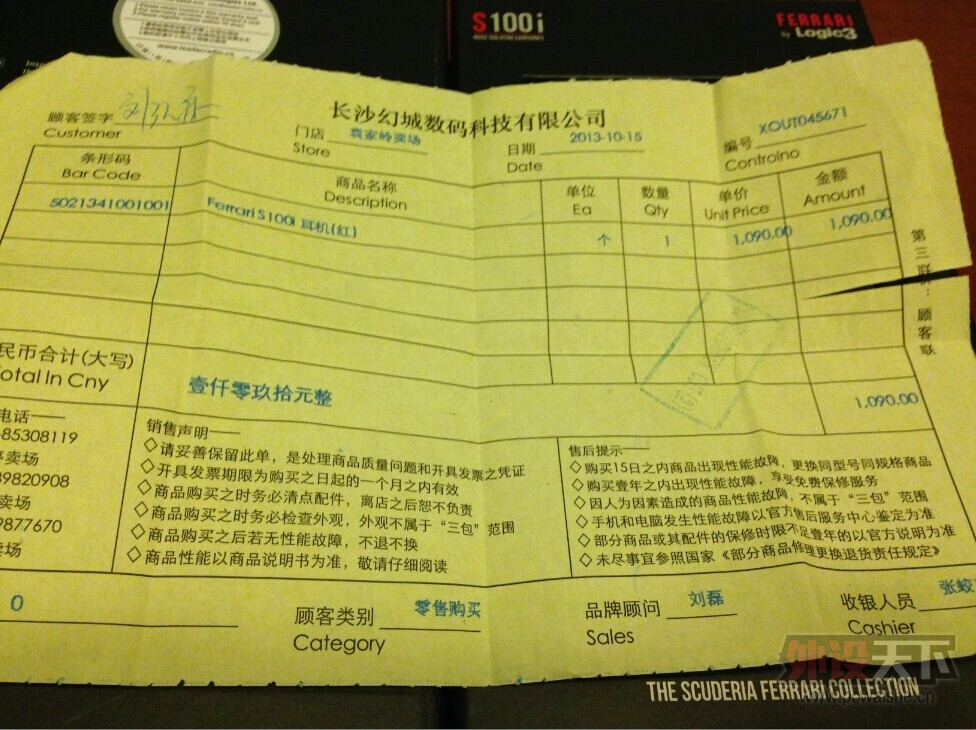 www.leaderradio.cn
S100i
FERRARI
by Logic3
长沙幻城数码科技有限公司
顾客签字
Customer
门店 袁家岭卖场
Store
日期 2013-10-15
Date
编号 XOUT045671
Controlno
条形码
Bar Code
商品名称
Description
单位
Ea
数量
Qty
单价
Unit Price
金额
Amount
5021341001001 Ferrari S100i 耳机(红) 个 1 1,090.00 1,090.00
第三联：顾客联
民币合计(大写)
otal In Cny
壹仟零玖拾元整
1,090.00
电话——
-85308119
卖场
39820908
卖场
9877670
卖场
销售声明——
◇请妥善保留此单，是处理商品质量问题和开具发票之凭证
◇开具发票期限为购买之日起的一个月之内有效
◇商品购买之时务必清点配件，离店之后恕不负责
◇商品购买之时务必检查外观，外观不属于“三包”范围
◇商品购买之后若无性能故障，不退不换
◇商品性能以商品说明书为准，敬请仔细阅读
售后提示——
◇购买15日之内商品出现性能故障，更换同型号同规格商品
◇购买壹年之内出现性能故障，享受免费保修服务
◇因人为因素造成的商品性能故障，不属于“三包”范围
◇手机和电脑发生性能故障以官方售后服务中心鉴定为准
◇部分商品或其配件的保修时限不足壹年的以官方说明为准
◇未尽事宜参照国家《部分商品修理更换退货责任规定》
0
顾客类别 零售购买
Category
品牌顾问 刘磊
Sales
收银人员 张蛟
Cashier
外设天下
www.pcwaishe.cn
THE SCUDERIA FERRARI COLLECTION